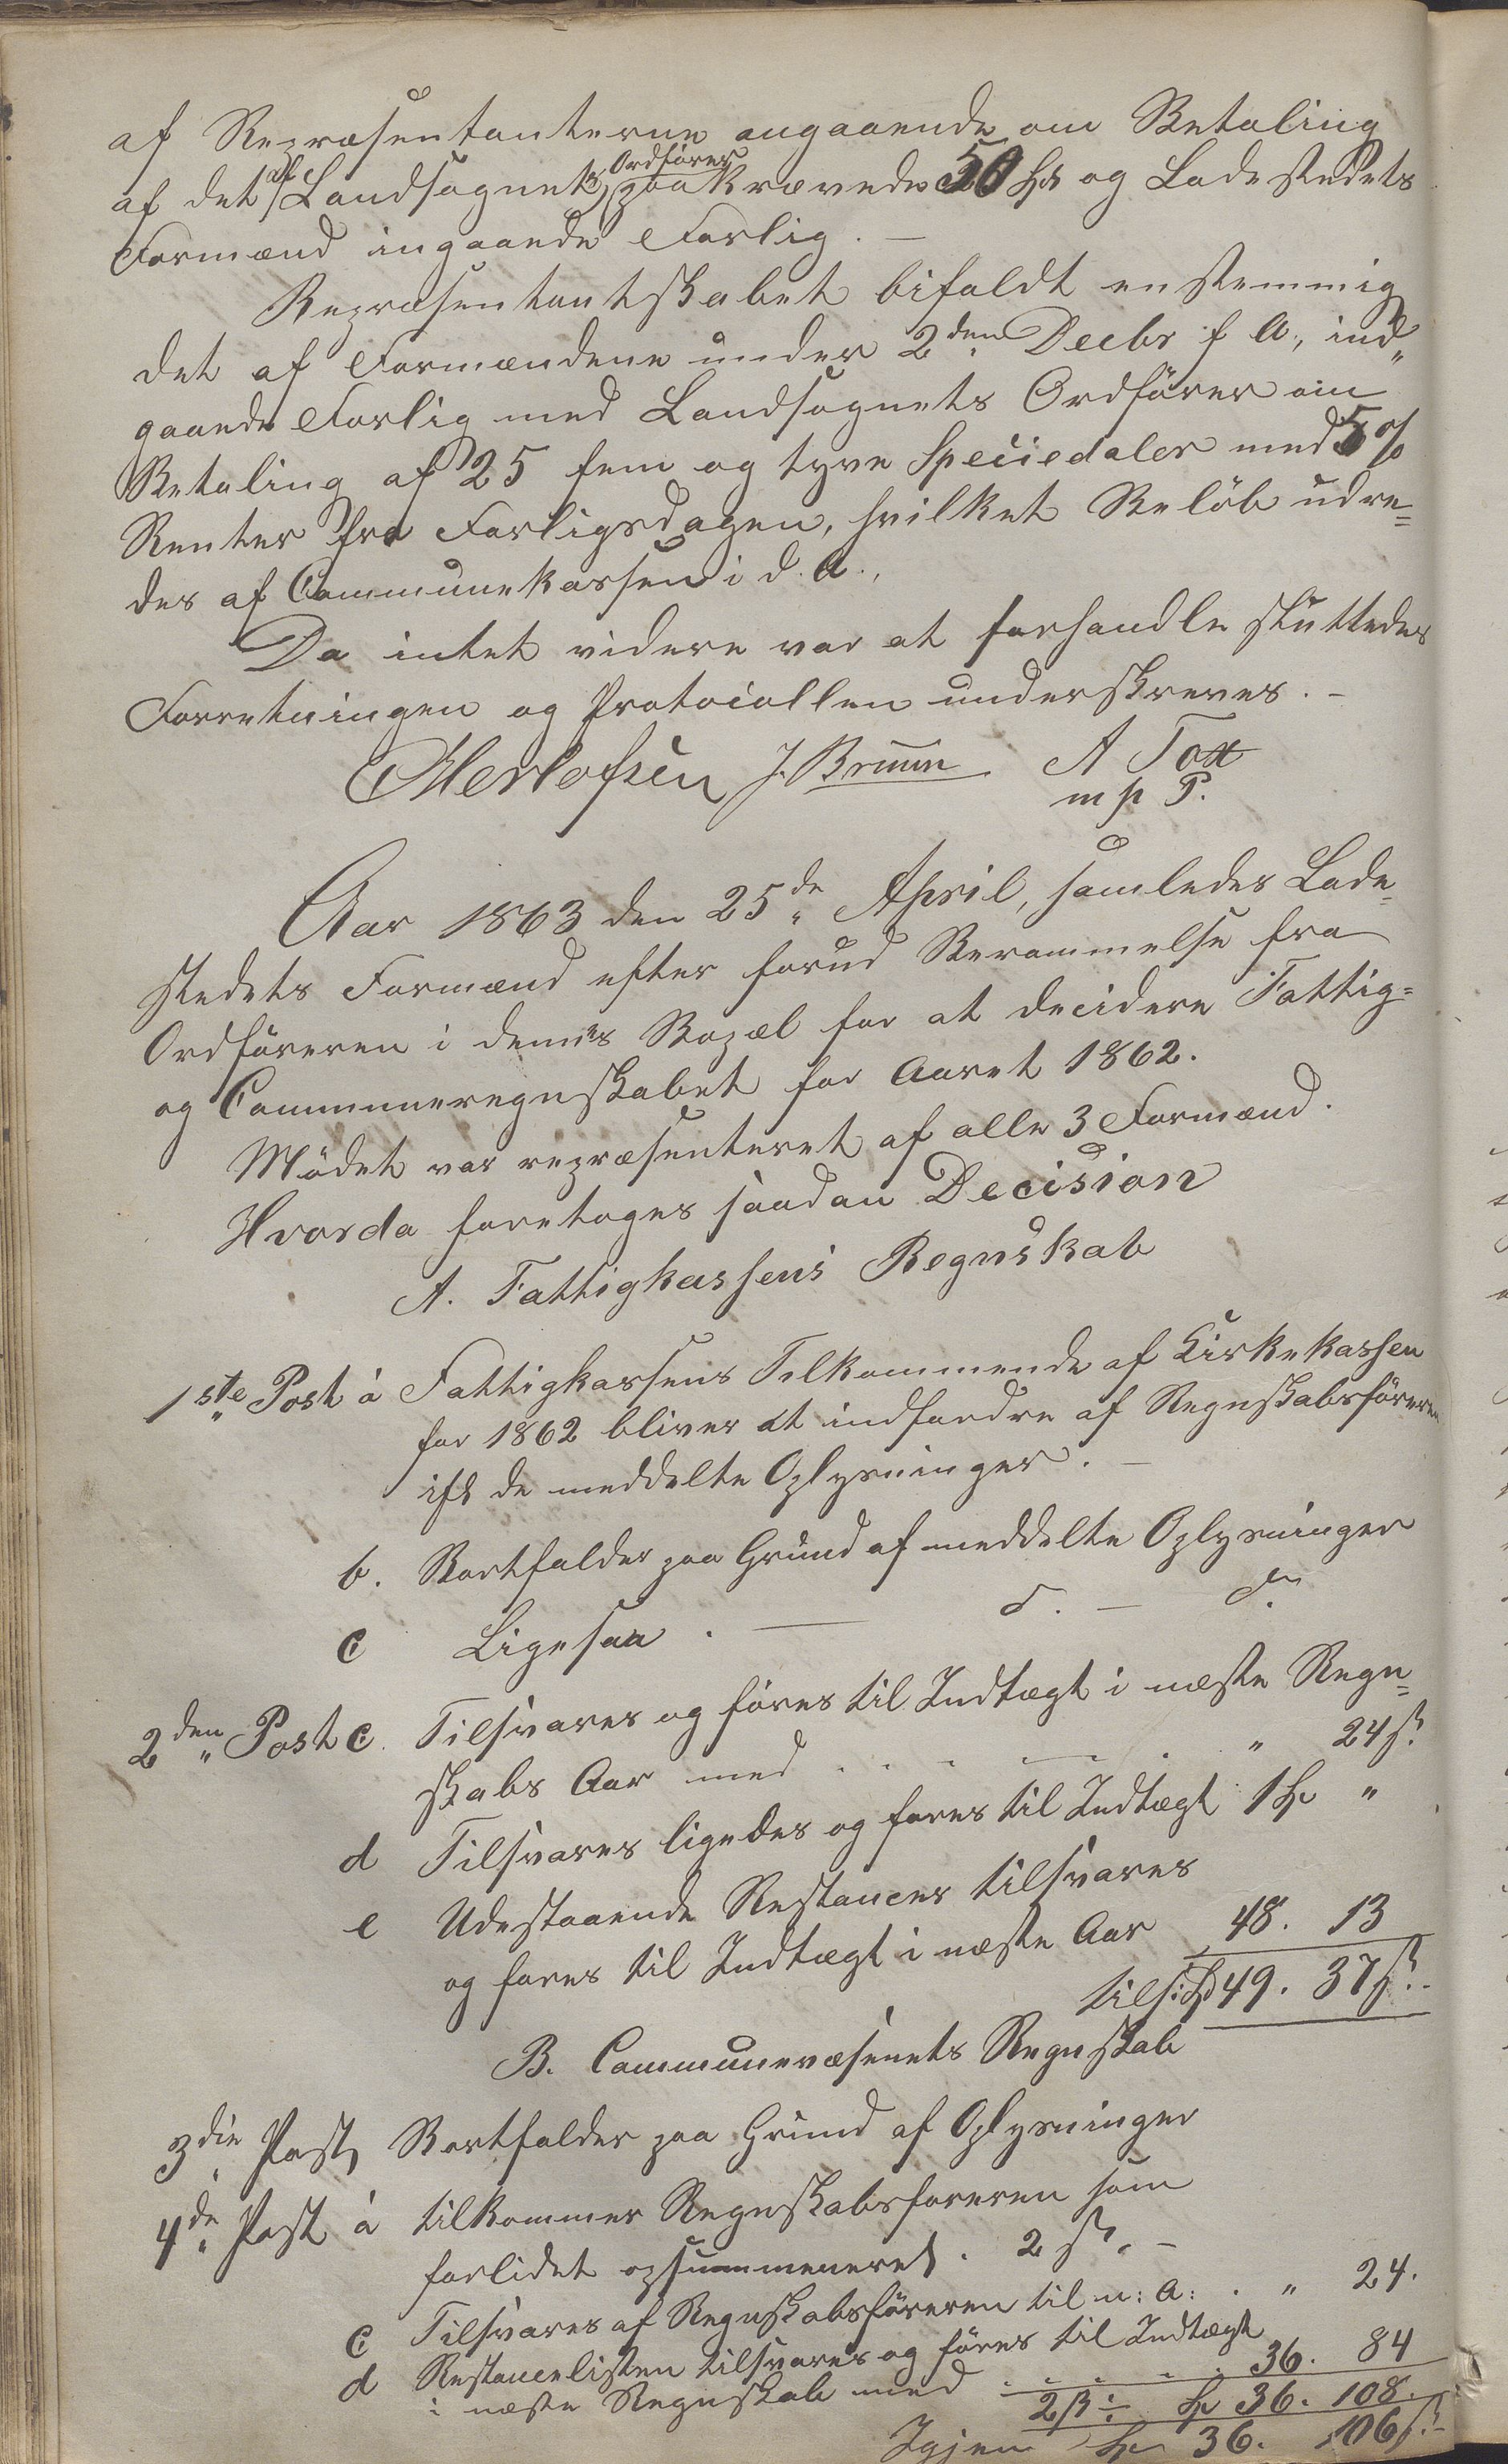 af Repræsentanterne angaaende om Betaling
af det af Landsognets Ordfører paakrævede 50 Spd og Ladestedets
Formænd ingaaende Forlig. —
Repræsentantskabet bifaldt enstemmig
det af Formændene under 2den Decbr f A., ind„
gaaende Forlig med Landsognets Ordfører om
Betaling af 25 fem og tyve Speciedaler med 5 %
Renter fra Forligsdagen, hvilket Beløb udre=
des af Communekassen i d. A.,
Da intet videre var at forhandle sluttedes
Forretningen og Protocollen underskreves. –
J. Bruun A Tox
m p P.
Aar 1863 den 25de April, samledes Lade=
stedets Formænd efter forud Berammelse fra
Ordføreren i dennes Bopæl for at decidere Fattig=
og Communeregnskabet for Aaret 1862.
Mödet var repræsenteret af alle 3 Formænd.
Hvorda foretoges saadan Decision
A. Fattigkassens Regnskab
1ste Post a Fattigkassens Tilkommende af Kirkekassen
for 1862 bliver at indfordre af Regnskabsföreren
ifl de meddelte Oplysninger. —
b. Bortfalder paa Grund af meddelte Oplysninger
c Ligesaa . — d. — do
2den Post c. Tilsvares og föres til Indtægt i næste Regn=
skabs Aar med . . - - . " 24 s.
d Tilsvares ligedes og föres til Indtægt 1 Sp "
e Udestaaende Restancer tilsvares
og föres til Indtægt i næste Aar 48. 13
tils. Spd 49. 37 s. -
B. Communevæsenets Regnskab
3die Post Bortfalder paa Grund af Oplysninger
4de Post a tilkommer Regnskabsføreren som
forlidet opsummeneret. 2 s. –
c Tilsvares af Regnskabsföreren til n: A: . " 24.
d Restancelisten tilsvares og föres til Indtægt
i næste Regnskab med . . . . . 36. 84
2 ß ÷ Sp 36. 108.
Igjen Sp 36. 106 s. -